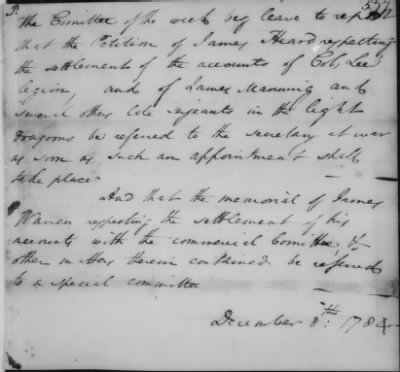 The Committee of the week beg leave to report
that the Petition of James Heard respecting
the settlement of the accounts of Col. Lee
legion, and of James Manning and
several other late serjeants in the light
dragoons be referred to the secretary at war
as soon as such an appointment shall
take place
And that the memorial of James
Warren respecting the settlement of his
accounts with the commercial Comittee, &
other matters therein contained be referred
to a special committee
December 8th: 1784